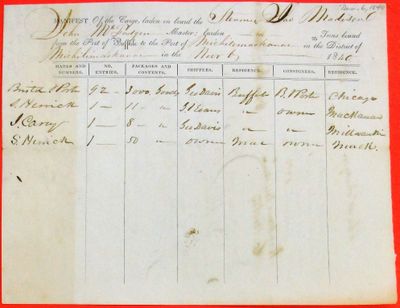 Nov. 6, 1840
MANIFEST Of the Cargo, laden on board the Steamer Jas Madison
John McFadgen Master; laden Tons bound
from the Port of Buffalo to the Port of Michilimackinac in the District of
Michilimackinac in the Nov 6 1840
MARKS AND NUMBERS. NO. ENTRIES. PACKAGES AND CONTENTS. SHIPPERS. RESIDENCE. CONSIGNEES. RESIDENCE.
92 Goods Geo Davis Buffalo Chicago
S. Herrick 1 11 " " owner Mackanac
J. Carey 1 8 " Geo Davis " " Milwaukie
S. Herrick 1 50 " owner Mac owner Mack.